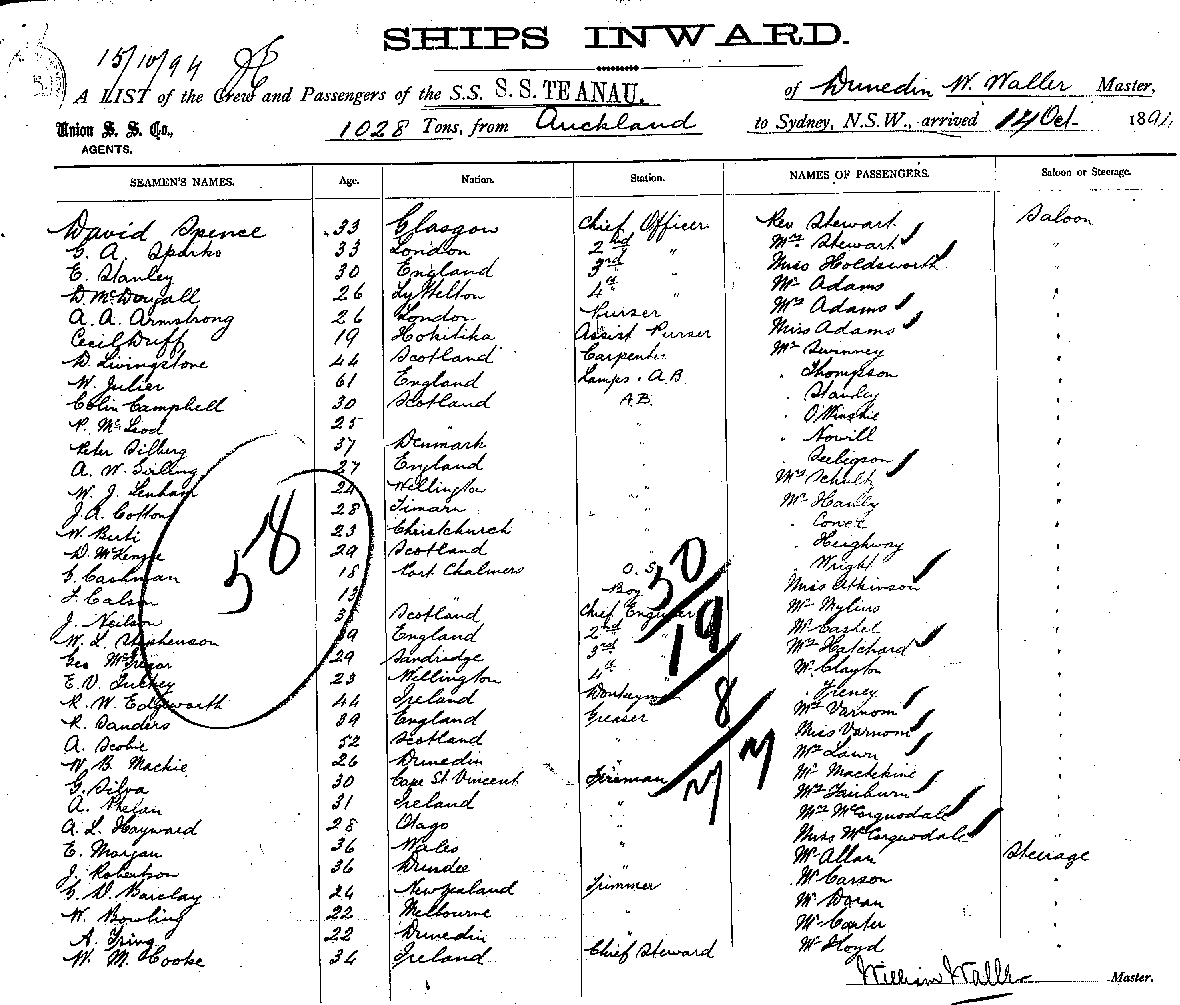 SHIPS INWARD.
15/10/94
A LIST of the Crew and Passengers of the S.S. S.S. TE ANAU. of Dunedin W. Waller Master,
Union S. S. Co., AGENTS. 1028 Tons, from Auckland to Sydney, N.S.W., arrived 14 Oct. 1894
SEAMEN'S NAMES. Age. Nation. Station. NAMES OF PASSENGERS. Saloon or Steerage.
David Spence 33 Glasgow Chief Officer Rev Stewart Saloon
G. A. Sparks 33 London 2nd " Mrs Stewart "
E. Stanley 30 England 3rd " Miss Holdsworth "
D. McDougall 26 Lyttelton 4th " Mr Adams "
A. A. Armstrong 26 London Purser Mrs Adams "
Cecil Duff 19 Hokitika Assist Purser Miss Adams "
D. Livingstone 44 Scotland Carpenter Mr Swinney "
W. Julier 61 England Lamps & A.B. " Thompson "
Colin Campbell 30 Scotland A.B. " Stanley "
R. McLeod 25 " " "
Peter Silberg 37 Denmark " " Novill "
A. W. Girling 27 England " " Seeligson "
W. J. Lenham 24 Wellington " Mrs Schultz "
J. A. Cotton 28 Timaru " Mr Hanly "
W. Berti 23 Christchurch " "
D. McKenzie 29 Scotland " " Heighway "
G. Cashman 18 Port Chalmers O.S. " Wright "
F. Calson 13 " Boy Miss Atkinson "
J. Neilson Scotland Chief Engineer Mr Mylius "
W. L. Stephenson 39 England 2nd " Mr Cashel "
Geo McGregor 29 Sandridge 3rd " Mrs Hatchard "
E. V. Tuckey 23 Wellington 4th " Mr Clayton "
R. W. Edgeworth 44 Ireland Donkeyman " Freney "
R. Sanders 39 England Greaser Mrs Varnom "
A. Scobie 52 Scotland " Miss Varnom "
W. B. Mackie 26 Dunedin " Mrs Lawn "
G. Silva 30 Cape St Vincent Fireman Mr "
A. Phelan 31 Ireland " Mrs Fairburn "
A. L. Hayward 28 Otago " Mrs McCorquodale "
E. Morgan 36 Wales " Miss McCorquodale "
J. Robertson 36 Dundee " Mr Allan Steerage
G. D. Barclay 24 New Zealand Trimmer Mr Carson "
W. Bowling 22 Melbourne " Mr Doran "
A. Tring 22 Dunedin " Mr Carter "
W. M. Cooke 34 Ireland Chief Steward Mr Lloyd "
58
30
19
8
William Waller Master.